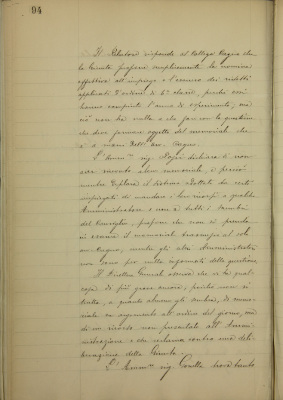 94
Il Relatore risponde al Collega Magno che
la Giunta propone semplicemente la nomina
effettiva all'impiego e l'esonero dei ridetti
applicati d'ordine di 2ª classe, perchè essi
hanno compiuto l'anno di esperimento, ma
ciò non ha nulla a che fare con la questione
che deve formare oggetto del memoriale che
è a mani dell' avv. Magno.
L' Amm.re sig. dichiara di non
aver avuto alcun memoriale, e perciò
mentre deplora il sistema adottato da certi
impiegati di mandare i loro a qualche
Amministratore e non a tutti i membri
del Consiglio, propone che non si prenda
in esame il memoriale trasmesso al
Magno, mentre gli altri Amministratori
non sono per nulla informati della questione.
Il Direttore Generale osserva che vi ha qual-
cosa di più grave ancora, poichè non si
tratta, a quanto almeno gli sembra, di memo-
riale su argomento all'ordine del giorno, ma
di un ricorso non presentato all' Ammi-
nistrazione e che reclama contro una deli-
berazione della Giunta.
L' Amm.re sig. trova tanto